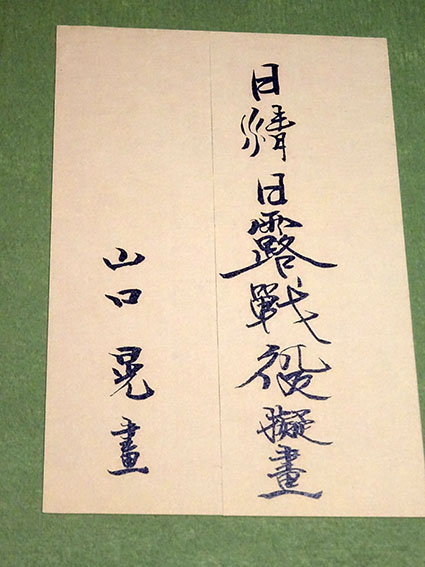 日清日露戰役擬畫
山口晃畫